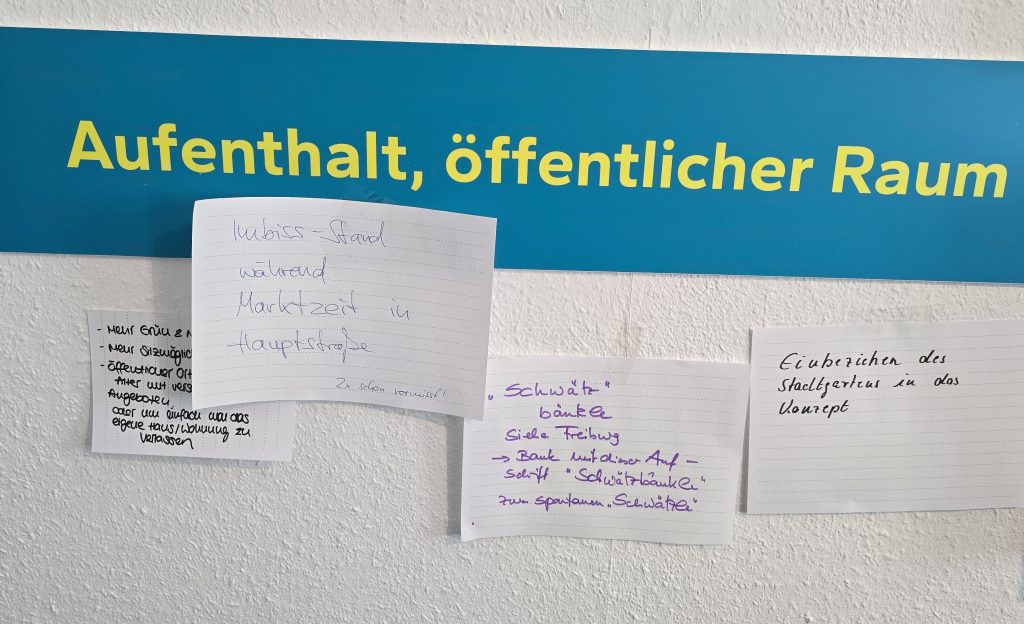 Aufenthalt, öffentlicher Raum
Imbiss-Stand
während
Marktzeit in
Hauptstraße
schon vermisst!
- Mehr Grün &
- Mehr
- Öffentlicher
Alter mit
Angeboten,
oder um einfach mal das
eigene Haus/Wohnung zu
verlassen
"Schwätz"
bänkle
Siehe Freiburg
→ Bank mit dieser Auf-
schrift "Schwätzbänkle"
zum spontanen "Schwätzle"
Einbeziehen des
Stadtgartens in das
Konzept